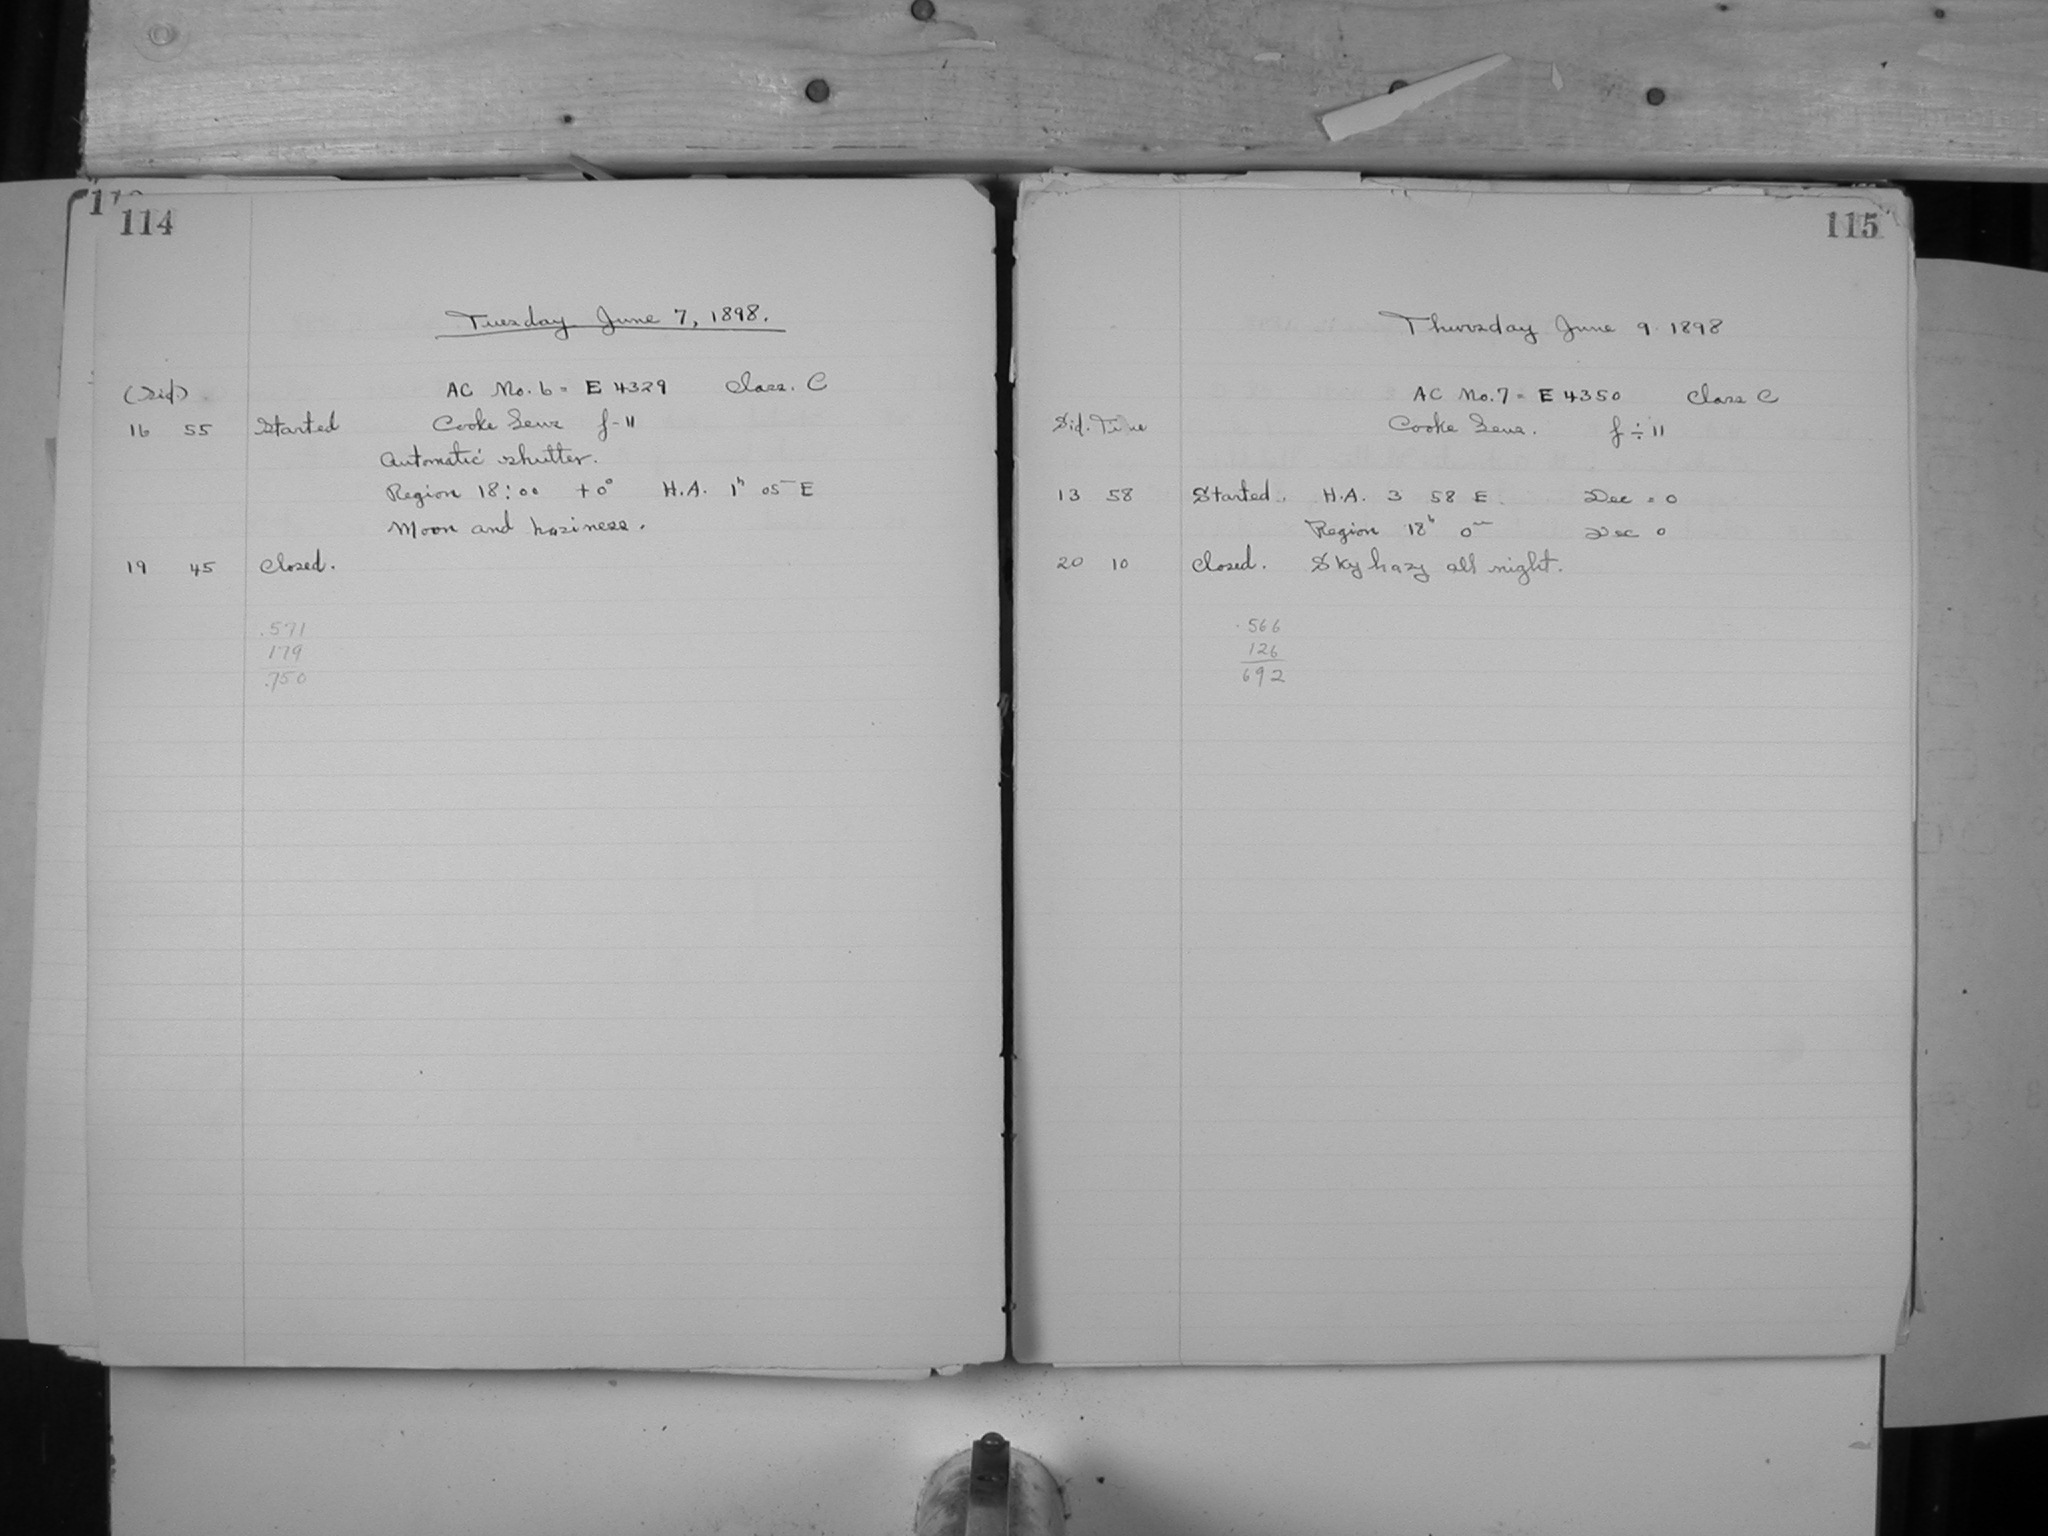 114
Tuesday June 7, 1898.
(Sid.)
AC No. 6 = E 4329 Class. C
16 55 Started Cooke Lens f-11
Automatic shutter.
Region 18:00 +0° H.A. 1h 05m E
Moon and haziness.
19 45 Closed.
.571
179
.750
115
Thursday June 9. 1898
AC No. 7 = E 4350 Class C
Sid. Time Cooke Lens. f ÷ 11
13 58 Started. H.A. 3 58 E. Dec = 0
Region 18h 0m Dec 0
20 10 Closed. Sky hazy all night.
.566
126
692